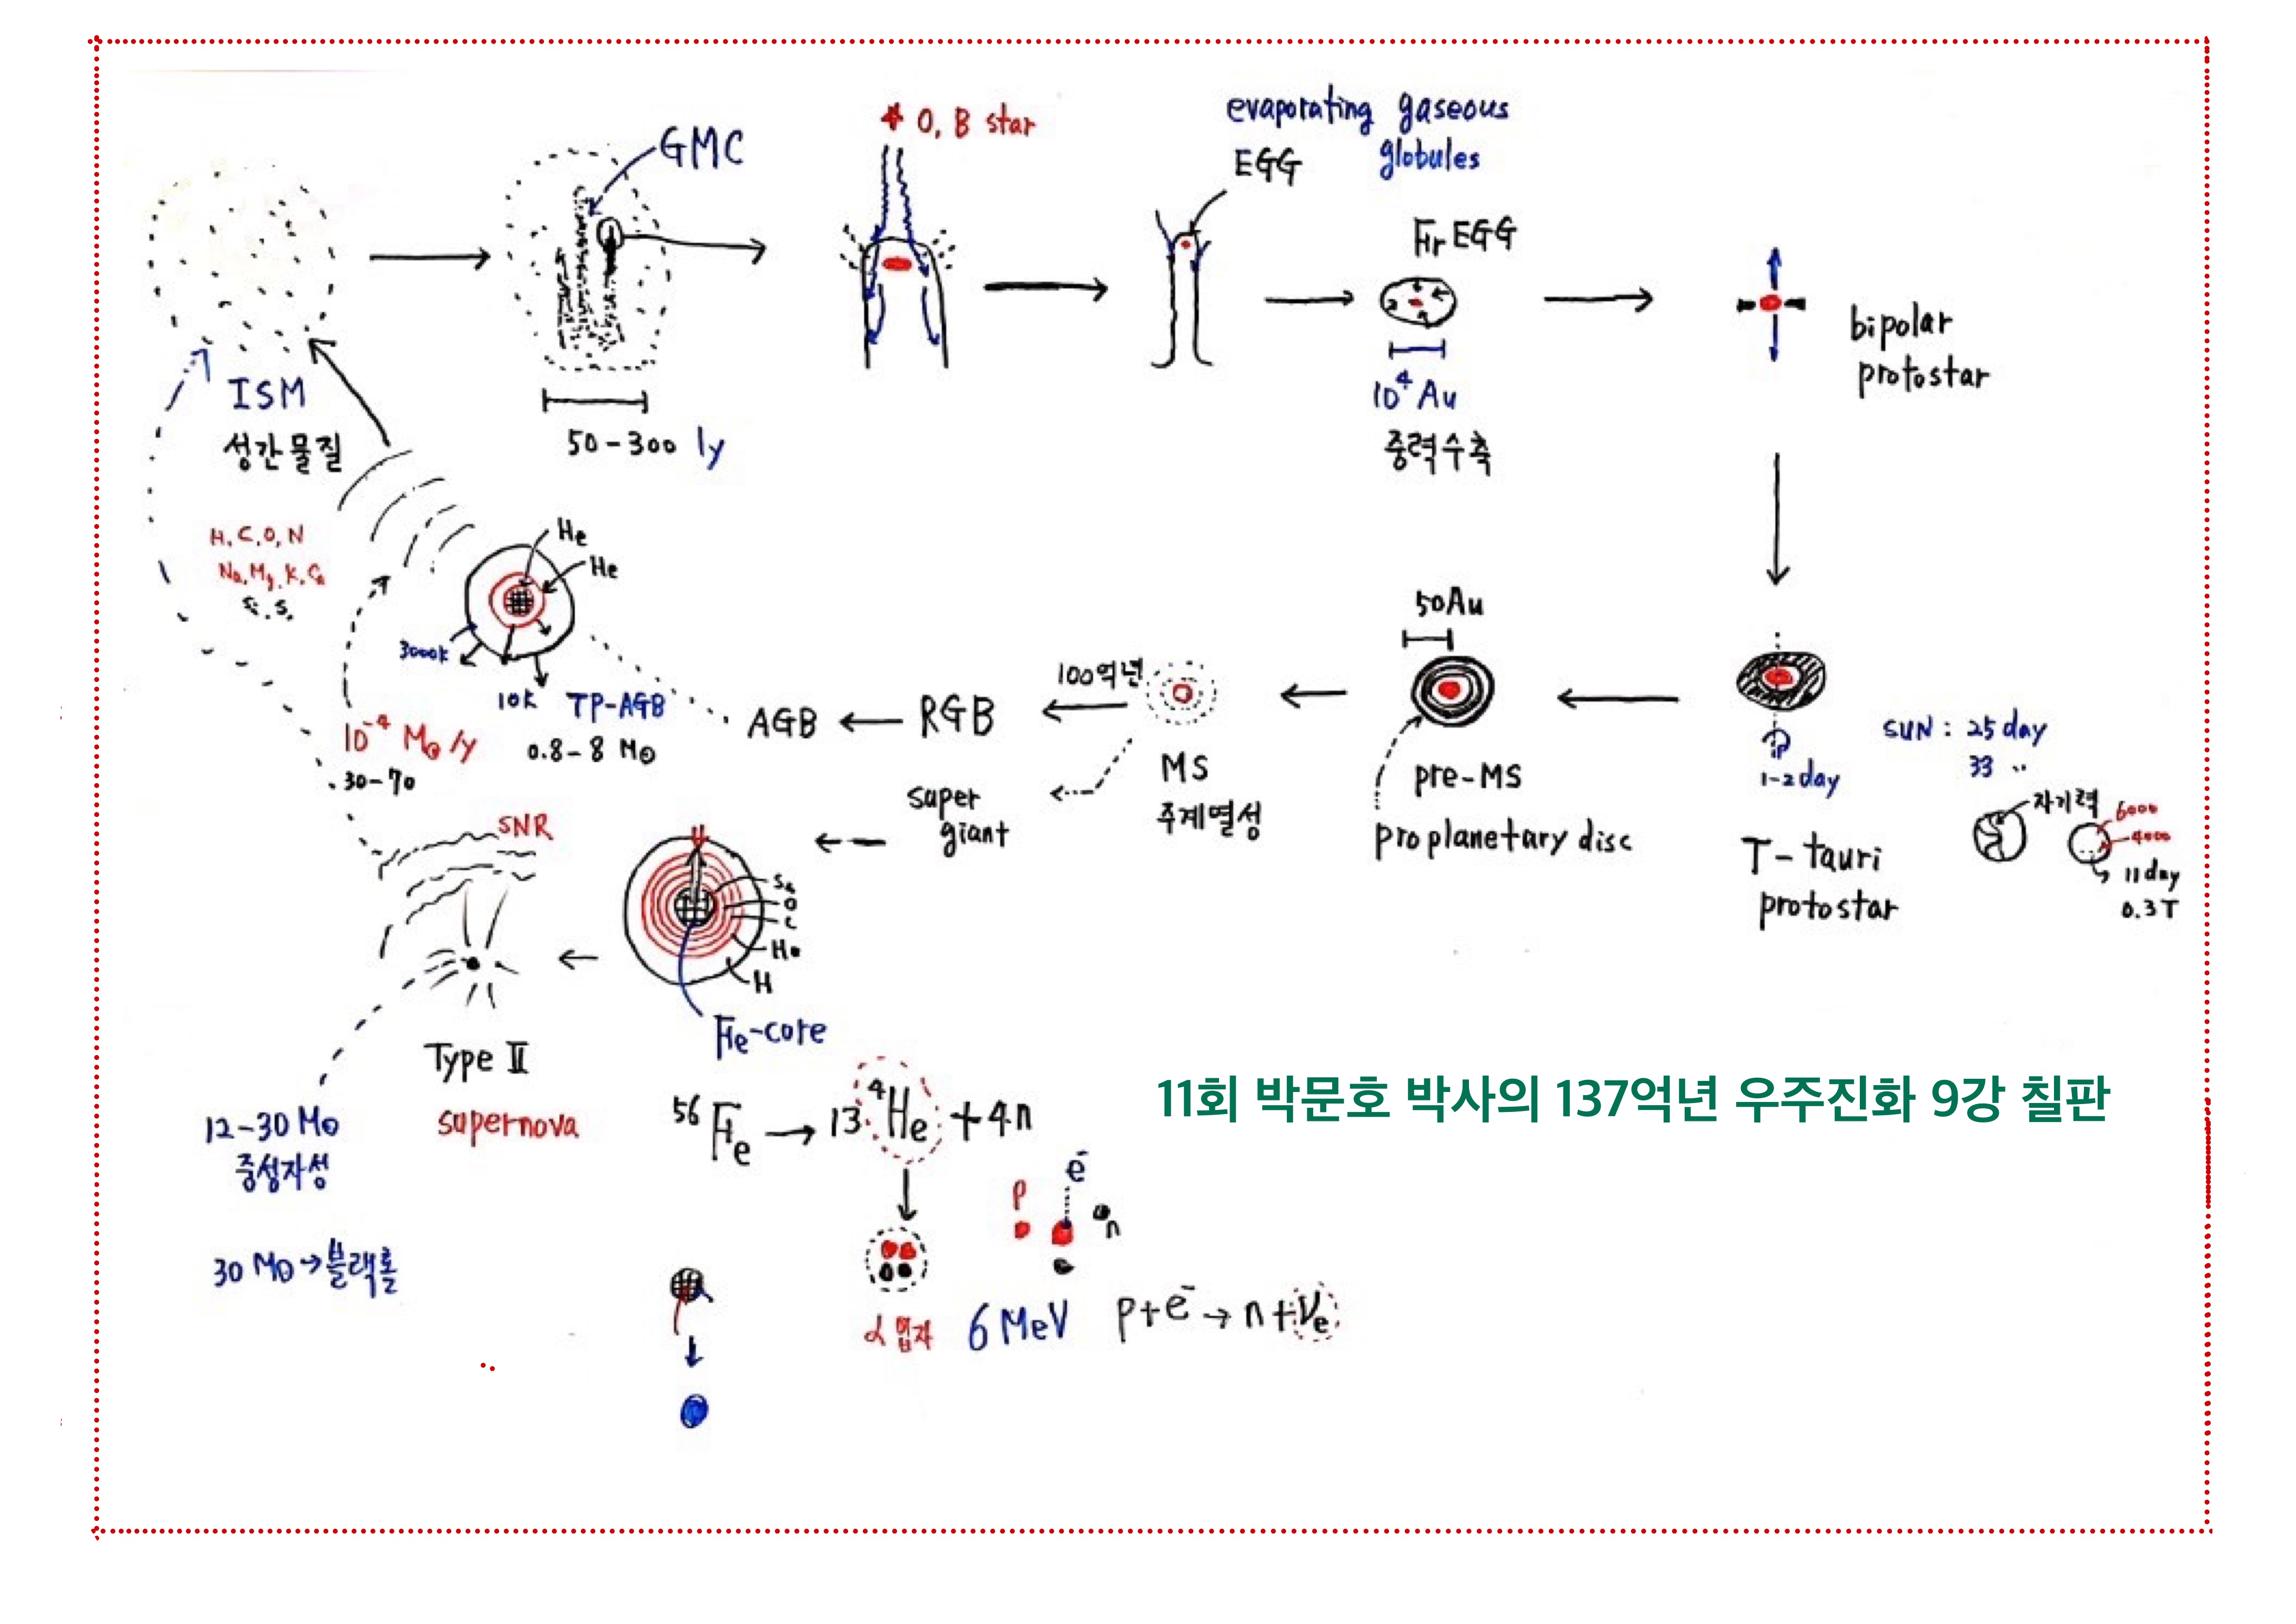 O, B star
GMC
evaporating gaseous
globules
EGG
Fr EGG
bipolar
protostar
10⁴ Au
중력수축
ISM
성간물질
50-300 ly
H, C, O, N
Na, Mg, K, Ca
Si, S.
He
He
3000k
10k
TP-AGB
0.8-8 M⊙
10⁻⁴ M⊙/y
30-70
AGB
RGB
100억년
MS
주계열성
50Au
pre-MS
proplanetary disc
1-2day
T-tauri
protostar
SUN : 25 day
33 ..
자기력
6000
4000
11 day
0.3T
super
giant
SNR
O
C
He
H
Fe-core
Type II
supernova
12-30 M⊙
중성자성
30 M⊙→블랙홀
⁵⁶Fe → 13 ⁴He + 4n
p
e⁻
n
α 입자
6 MeV
p+e⁻ → n+νe
11회 박문호 박사의 137억년 우주진화 9강 칠판